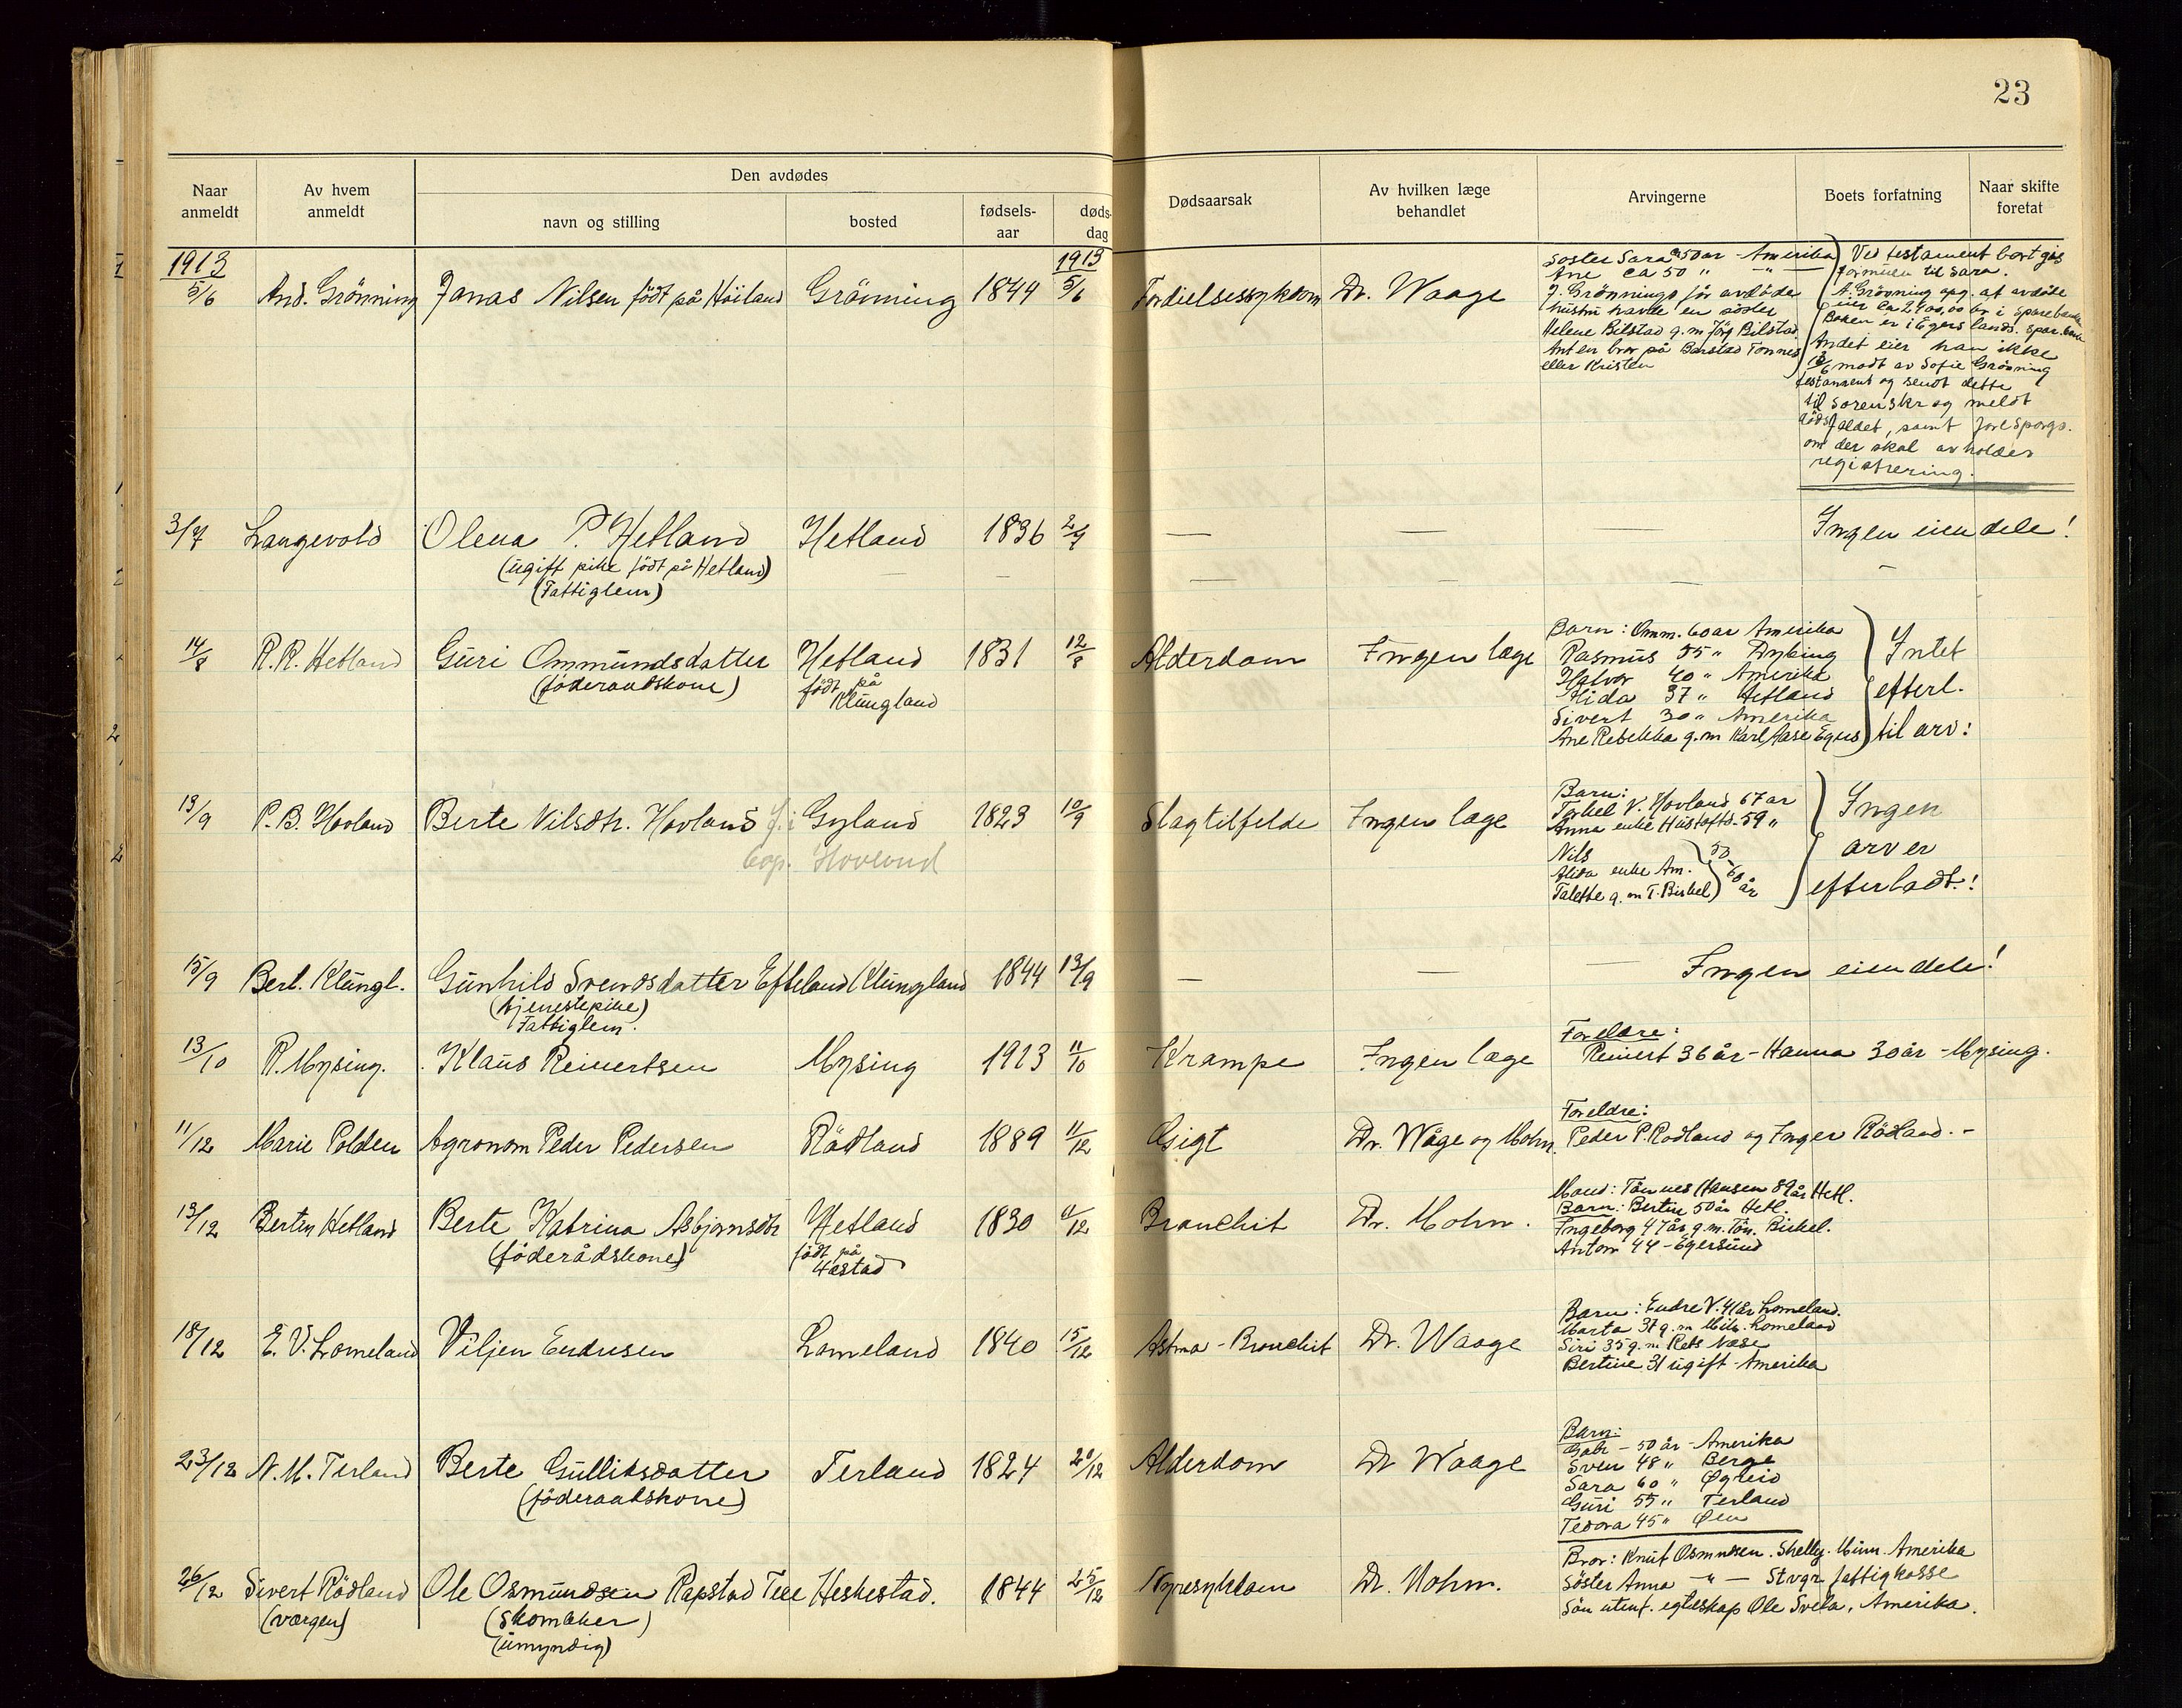 23
Naar anmeldt
Av hvem anmeldt
Den avdødes
navn og stilling
bosted
fødsels-aar
døds-dag
Dødsaarsak
Av hvilken læge behandlet
Arvingerne
Boets forfatning
Naar skifte foretat
1913 1913
5/6 And. Grönning Jonas Nilsen födt på Höiland Grönning 1844 5/6 Dr. Waage
Söster Sara 50 år - Amerika
Ane ca 50 " - " -
J. Grönnings för avdöde
hustru havde en söster
Helene Bilstad g. m. Jörg Bilstad
Ant en bror på Barstad Tönnes
eller Kristen
Ved testament bort gis
formuen til Sara.
A. Grönning opg. at avdöde
eier ca 2400,00 kr i sparebanken
Boken er i Egersunds spar.bank
Andet eier han ikke
modt av Sofie Grönning
testament og sendt dette
til Sorenskr og meldt
dödsfaldet, samt forespörgs.
om der skal avholdes
registrering.
3/7 Langevold Olena P. Hetland Hetland 1836 2/7 — — — Ingen eiendele!
(ugift pike födt på Hetland)
(Fattiglem)
14/8 R. R. Hetland Guri Ommundsdatter Hetland 1831 12/8 Alderdom Ingen læge
(föderaadskone) födt på
Klungland
Barn: Omm. 60 år Amerika
Rasmus 55 " Dybing
Halvor 40 " Amerika
Alida 37 " Hetland
Sivert 30 " Amerika
Ane Rebekka g. m. Karl Aase Egers
Intet
efterl.
til arv!
13/9 P. B. Hovland Berte Nilsdtr. Hovland f. i Gyland 1823 10/9 Slagtilfelde Ingen læge
bop. Hovland
Barn:
Torkel V. Hovland 67 år
Anna enke Hustoft 59 "
Nils
Alida enke Am.
Talette g. m. T. Birkel
50-60 år
Ingen
arv er
efterladt!
15/9 Berl. Klungl. Gunhild Svendsdatter Efteland Klungland 1844 13/9 — — — Ingen eiendele!
(tjenestepike)
Fattiglem.
13/10 R. Mysing. Klaus Reinertsen Mysing 1913 11/10 Krampe Ingen læge
Foreldre:
Reinert 36 år - Hanna 30 år - Mysing.
11/12 Marie Polden Agronom Peder Pedersen Rödland 1889 11/12 Gigt Dr. Wåge og Mohn.
Foreldre:
Peder P. Rödland og Inger Rödland. -
13/12 Bertin Hetland Berte Katrina Asbjørnsdtr Hetland 1830 11/12 Bronchit Dr. Mohn.
(föderådskone) födt på
Mand: Tönnes Hansen 89 år Hetl.
Barn: Bertine 50 år Hetl.
Ingeborg 47 år g. m. Tön. Birkel.
Anton 44 - Egersund
18/12 E. V. Lomeland Viljen Endresen Lomeland 1840 15/12 Astma - Bronchit Dr. Waage
Barn: Endre V. 41 år Lomeland.
Marta 37 g. m. Lomeland
Siri 35 g. m.
Bertine 31 ugift - Amerika
23/12 N. M. Terland Berte Gulliksdatter Terland 1824 20/12 Alderdom Dr Waage
(föderaadskone)
Barn:
Gabr - 50 år - Amerika
Sven 48 " Berge
Sara 60 " Øgreid
Guri 55 " Terland
Tedora 45 " Øen
26/12 Sivert Rödland Ole Osmundsen Rapstad Heskestad. 1844 25/12 Nyresykdom Dr. Mohn.
(værgen) (Skomaker)
(umyndig)
Bror: Knut Osmundsen. Shelly. Minn. Amerika
Söster Anna — " — Stvgr fattigkasse
Sön utenf. egteskap Ole Svela, Amerika.